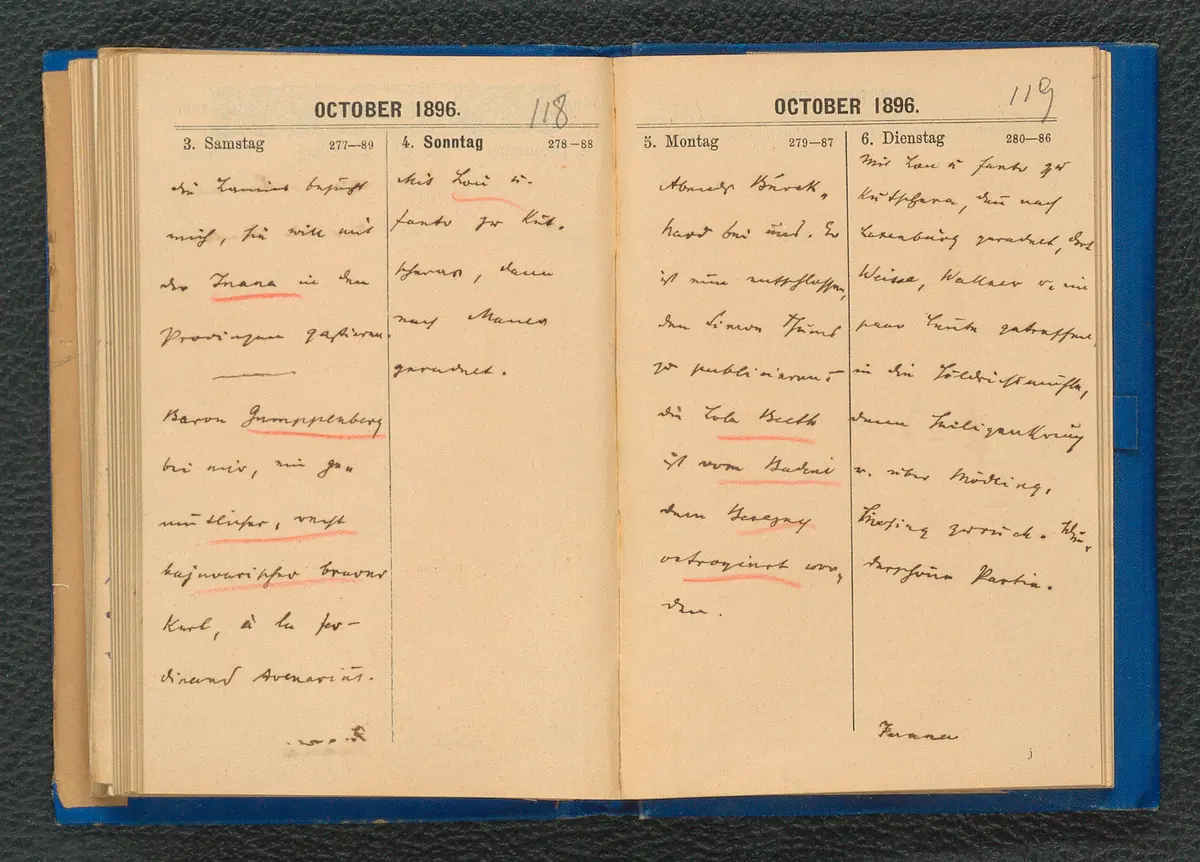 OCTOBER 1896.
118
3. Samstag 277—89
die besucht
mich, sie will mit
der Juana in den
Provinzen gastieren.
Baron Gumppenberg
bei mir, ein ge-
mütlicher, recht
bajuvarischer braver
Kerl, à la Fer-
dinand Avenarius.
4. Sonntag 278—88
Mit Lou u.
fanto zur Kut.
schera, dann
nach Mauer
geradelt.
OCTOBER 1896.
119
5. Montag 279—87
Abends Burck-
hard bei uns. Er
ist nun entschlossen,
den Simon Thums
zu publicieren
die Lola Beeth
ist vom Badeni
dem Bezecny
octroyirt wor-
den.
6. Dienstag 280—86
Mit Lou u fanto zur
Kutschera, dann nach
Laxenburg geradelt, dort
Weisse, Wallner u. ein
paar Leute getroffen,
in die Höldrichsmühle,
dann Heiligenkreuz
u. über Mödling,
Liesing zurück. Wun-
derschöne Partie.
j